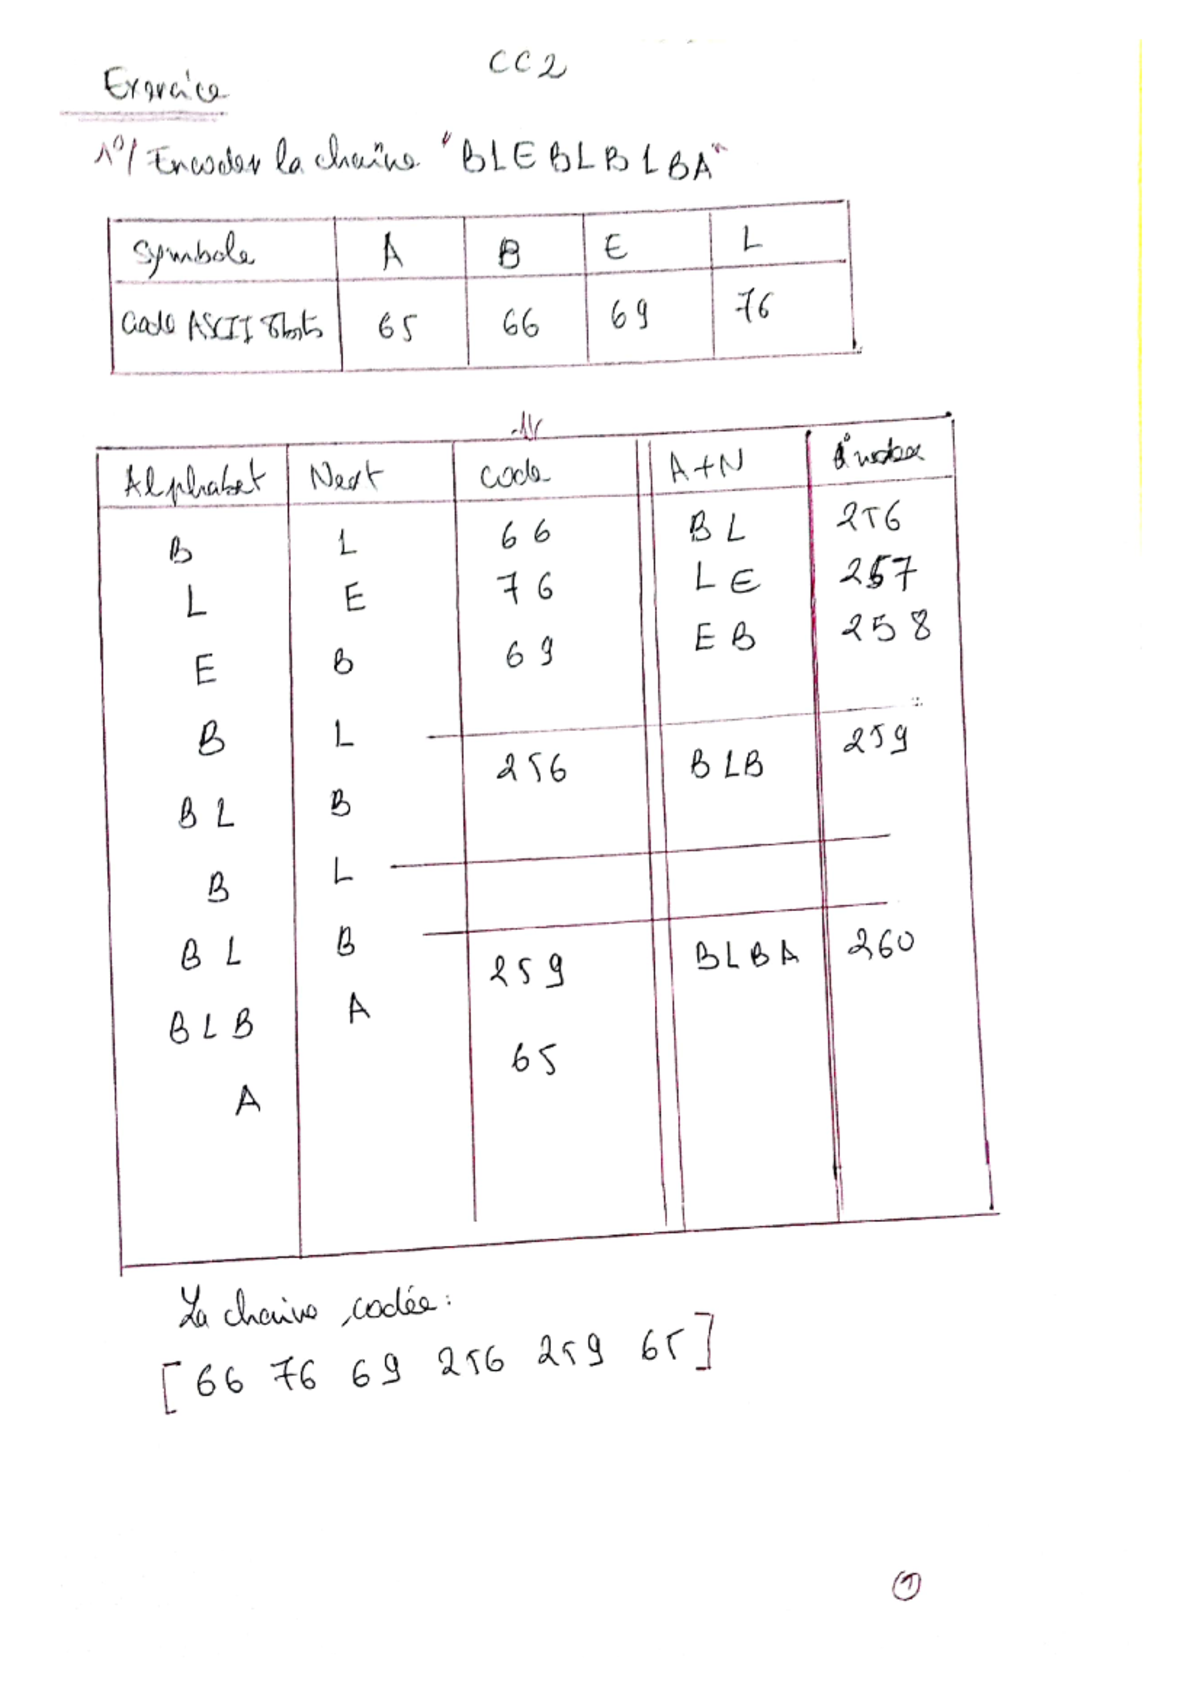 CC2
Exercice
1°/ Encoder la chaîne "BLEBLBLBA"
Symbole A B E L
Code ASCII 8bits 65 66 69 76
Alphabet Next Code A+N index
B L 66 BL 256
L E 76 LE 257
E B 69 EB 258
B L
BL B 256 BLB 259
B L
BL B
BLB A 259 BLBA 260
A 65
La chaine codée:
[66 76 69 256 259 65]
1